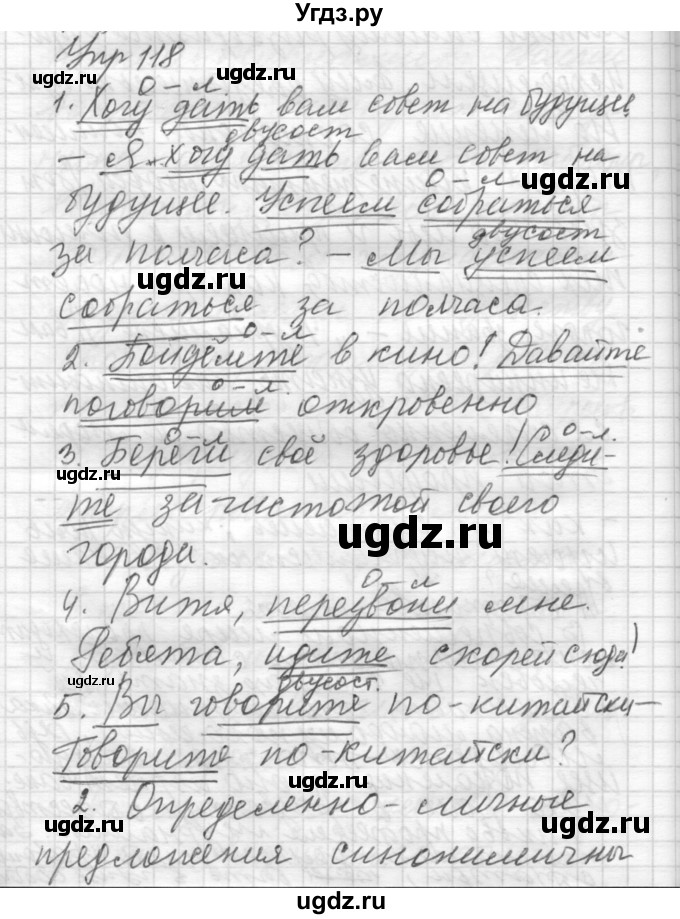 Угдз.ру
Упр 118
о - л
1. Хочу дать вам совет на будущее
двусост
— Я хочу дать вам совет на
ugdz.ru
о - л
ugdz.ru
будущее. Успеем собраться
двусост
за полчаса? — Мы успеем
ugdz.ru
собраться за полчаса.
о - л
2. Пойдёмте в кино! Давайте
о - л
поговорим откровенно
о - л
о-л.
3. Береги своё здоровье! Следи-
те за чистотой своего
ugdz.ru
города.
о - л
4. Витя, перезвони мне.
Ребята, идите скорей сюда!
ugdz.ru
двусост.
5. Вы говорите по-китайски —
ugdz.ru
Говорите по-китайски?
2. Определенно-личные
ugdz.ru
ugdz.ru
предложения синонимичны
ugdz.ru